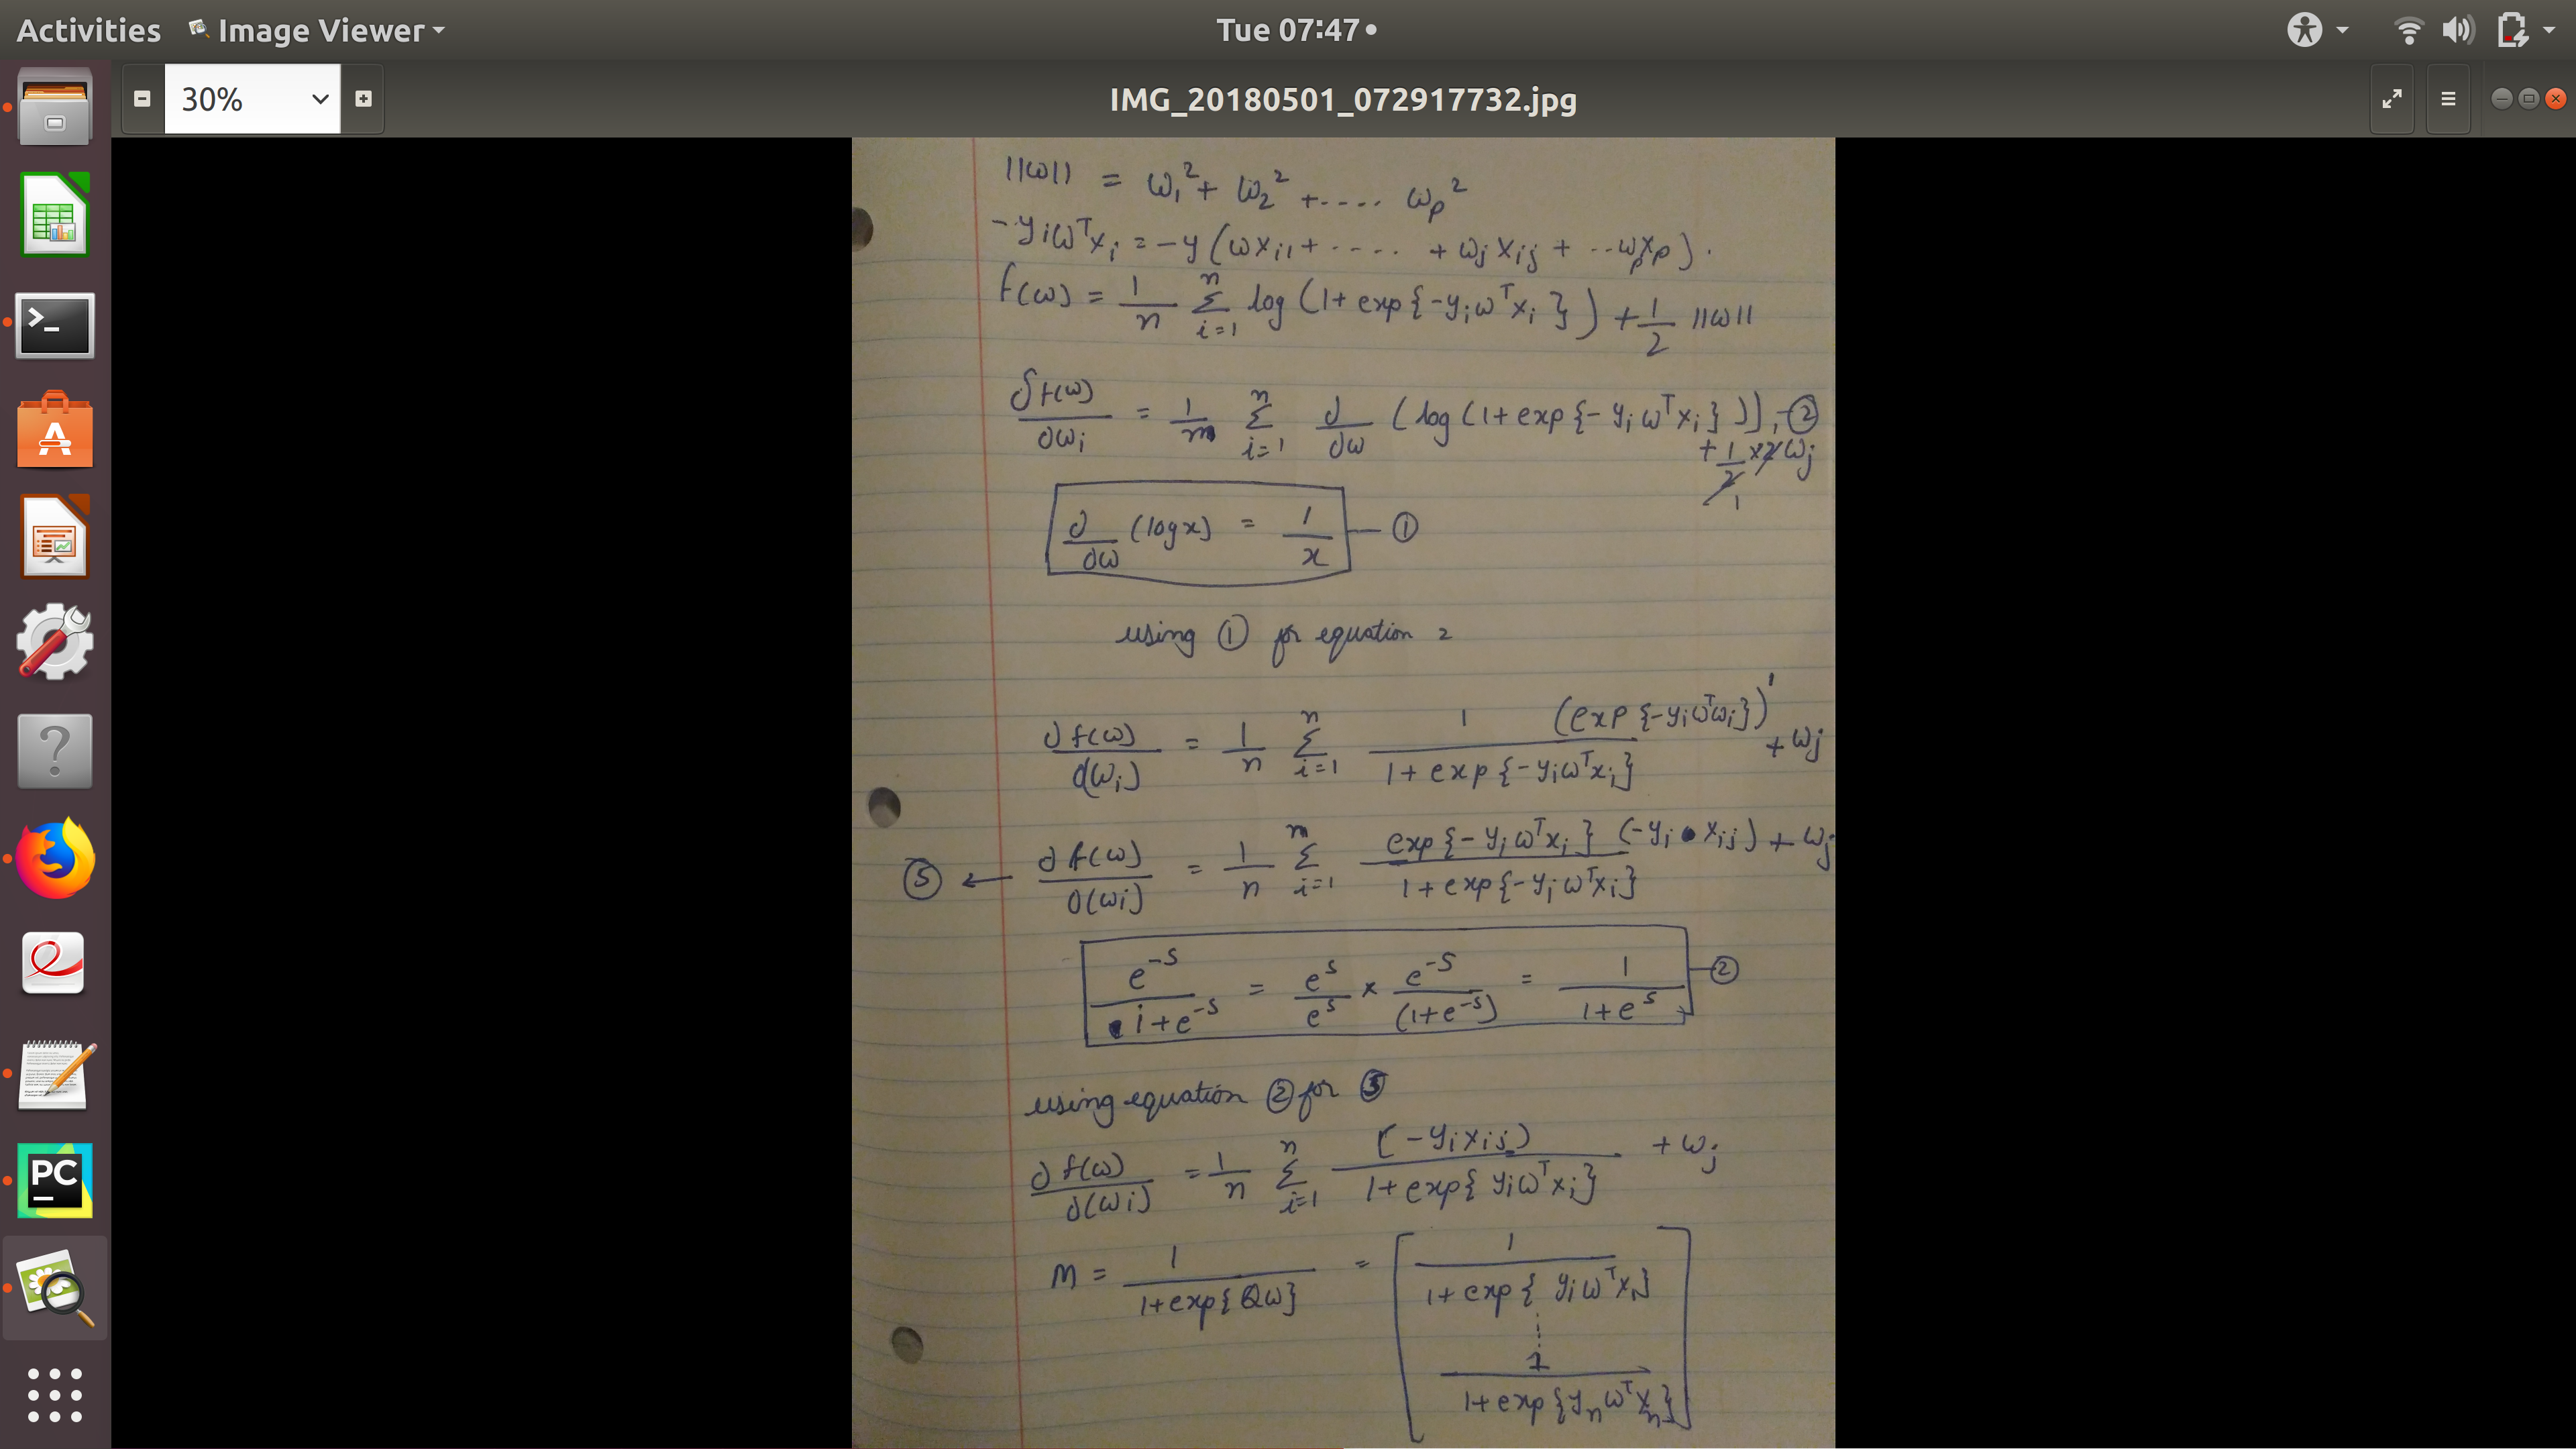 Activities Image Viewer Tue 07:47
30% IMG_20180501_072917732.jpg
||ω|| = ω₁² + ω₂² +.... ωp²
-yiωᵀxi = -y (ωxi1 + ..... + ωj xij + ..ωpxp).
f(ω) = 1/n Σ_{i=1}^{n} log (1+ exp{-yiωᵀxi}) + 1/2 ||ω||
∂f(ω)/∂ωi = 1/n Σ_{i=1}^{n} ∂/∂ω (log(1+exp{-yiωᵀxi})), ②
+ 1/2 x2ωj
1
∂/∂ω (log x) = 1/x — ①
using ① for equation 2
∂f(ω)/∂(ωi) = 1/n Σ_{i=1}^{n} 1/(1+exp{-yiωᵀxi}) (exp{-yiωᵀωi})' + ωj
⑤ ← ∂f(ω)/∂(ωi) = 1/n Σ_{i=1}^{n} exp{-yiωᵀxi} (-yi xij)/(1+exp{-yiωᵀxi}) + ωj
e^{-s}/(1+e^{-s}) = e^{s}/e^{s} x e^{-s}/(1+e^{-s}) = 1/(1+e^{s}) — ②
using equation ② for ⑤
∂f(ω)/∂(ωi) = 1/n Σ_{i=1}^{n} (-yixij)/(1+exp{yiωᵀxi}) + ωj
M = 1/(1+exp{Qω}) = [ 1/(1+exp{yiωᵀxN}
⋮
1/(1+exp{ynωᵀxn} ]
PC